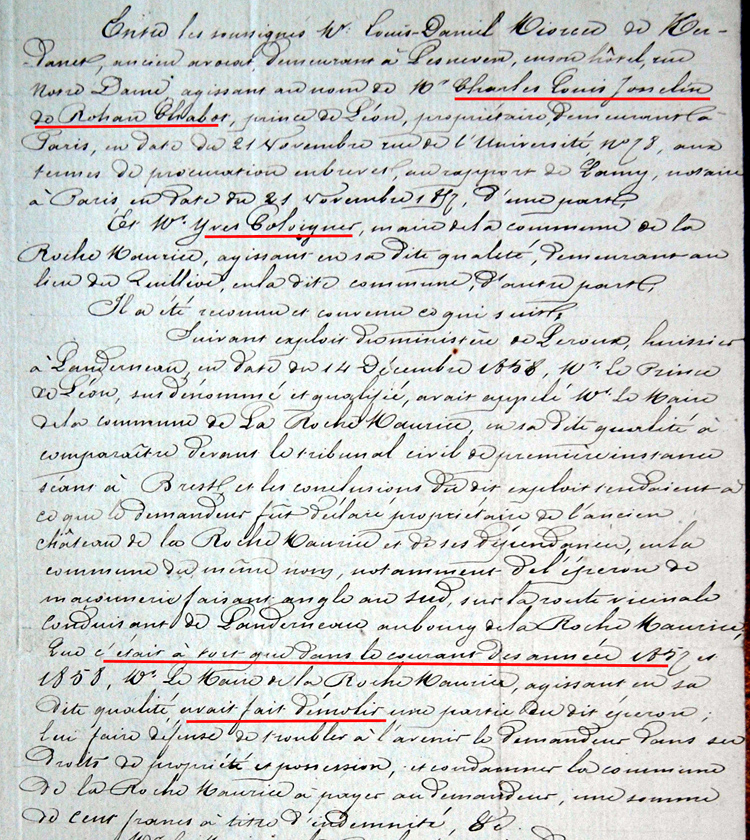 Entre les soussignés Mr. Louis-Daniel Miorcec de Ker-
-danet, ancien avocat demeurant à Lesneven, en son hôtel, rue
Notre Dame agissant au nom de Mr. Charles Louis Josselin
de Rohan Chabot, prince de Léon, propriétaire, demeurant à
Paris, en date du 21 Novembre rue de l'Université No 78, aux
termes de procuration en brevet, au rapport de Lamy, notaire
à Paris en date du 21 Novembre 1857, d'une part,
Et Mr. Yves Colcigner, maire de la commune de la
Roche Maurice, agissant en sa dite qualité, demeurant au
lieu du Quillivé, en la dite commune, d'autre part,
Il a été reconnu et convenu ce qui suit,
Suivant exploit du ministère de Leroux, huissier
à Landerneau, en date du 14 Décembre 1858, Mr. Le Prince
de Léon, sus dénommé et qualifié, avait appelé Mr. Le Maire
de la commune de La Roche Maurice, en sa dite qualité à
comparaître devant le tribunal civil de première instance
séant à Brest, et les conclusions du dit exploit tendaient à
ce que le demandeur fut déclaré propriétaire de l'ancien
château de la Roche Maurice et de ses dépendances, en la
commune du même nom, notamment de l'éperon de
maçonnerie faisant angle au sud, sur la route vicinale
conduisant de Landerneau au bourg de la Roche Maurice,
Que c'était à tort que dans le courant des année 1857 et
1858, Mr. Le Maire de la Roche Maurice, agissant en sa
dite qualité, avait fait démolir une partie du dit éperon;
lui faire défense de troubler à l'avenir le demandeur dans ses
droits de propriété et possession, et condamner la commune
de la Roche Maurice à payer au demandeur, une somme
de cent francs à titre d'indemnité, &c.